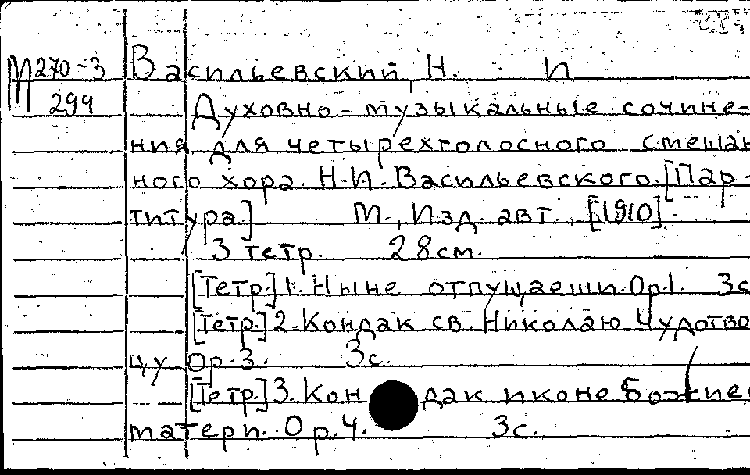 М 270-3 Васильевский, Н. И
299 Духовно-музыкальные сочине-
ния для четырехголосного смешан
ного хора Н.И. Васильевского. [Пар-
титура.] М., Изд. авт., [1910].
3 тетр. 28 см.
[Тетр.] 1. Ныне отпущаеши. Ор.1. 3с
[Тетр.] 2. Кондак св. Николаю Чудотво
цу Ор.3. 3с.
[Тетр.] 3. Кондак иконе Божией
матери. Ор.4. 3с.